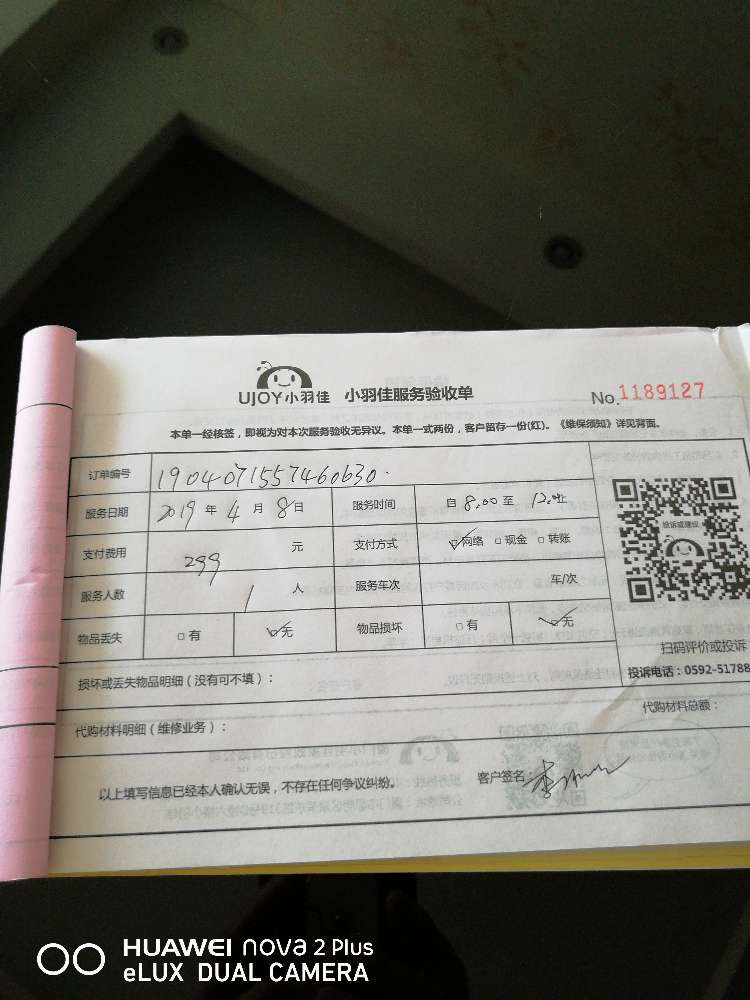 UJOY小羽佳 小羽佳服务验收单 No.1189127
本单一经核签，即视为对本次服务验收无异议。本单一式两份，客户留存一份(红)。《维保须知》详见背面。
订单编号 1904071557460630.
服务日期 2019 年 4 月 8 日 服务时间 自 8.00 至 12.00
支付费用 299 元 支付方式 ☑网络 □现金 □转账
投诉或建议
服务人数 1 人 服务车次 车/次
物品丢失 □有 ☑无 物品损坏 □有 ☑无
扫码评价或投诉
投诉电话：0592-51788
损坏或丢失物品明细（没有可不填）：
代购材料明细（维修业务）： 代购材料总额：
以上填写信息已经本人确认无误，不存在任何争议纠纷。 客户签名：
HUAWEI nova 2 Plus
eLUX DUAL CAMERA